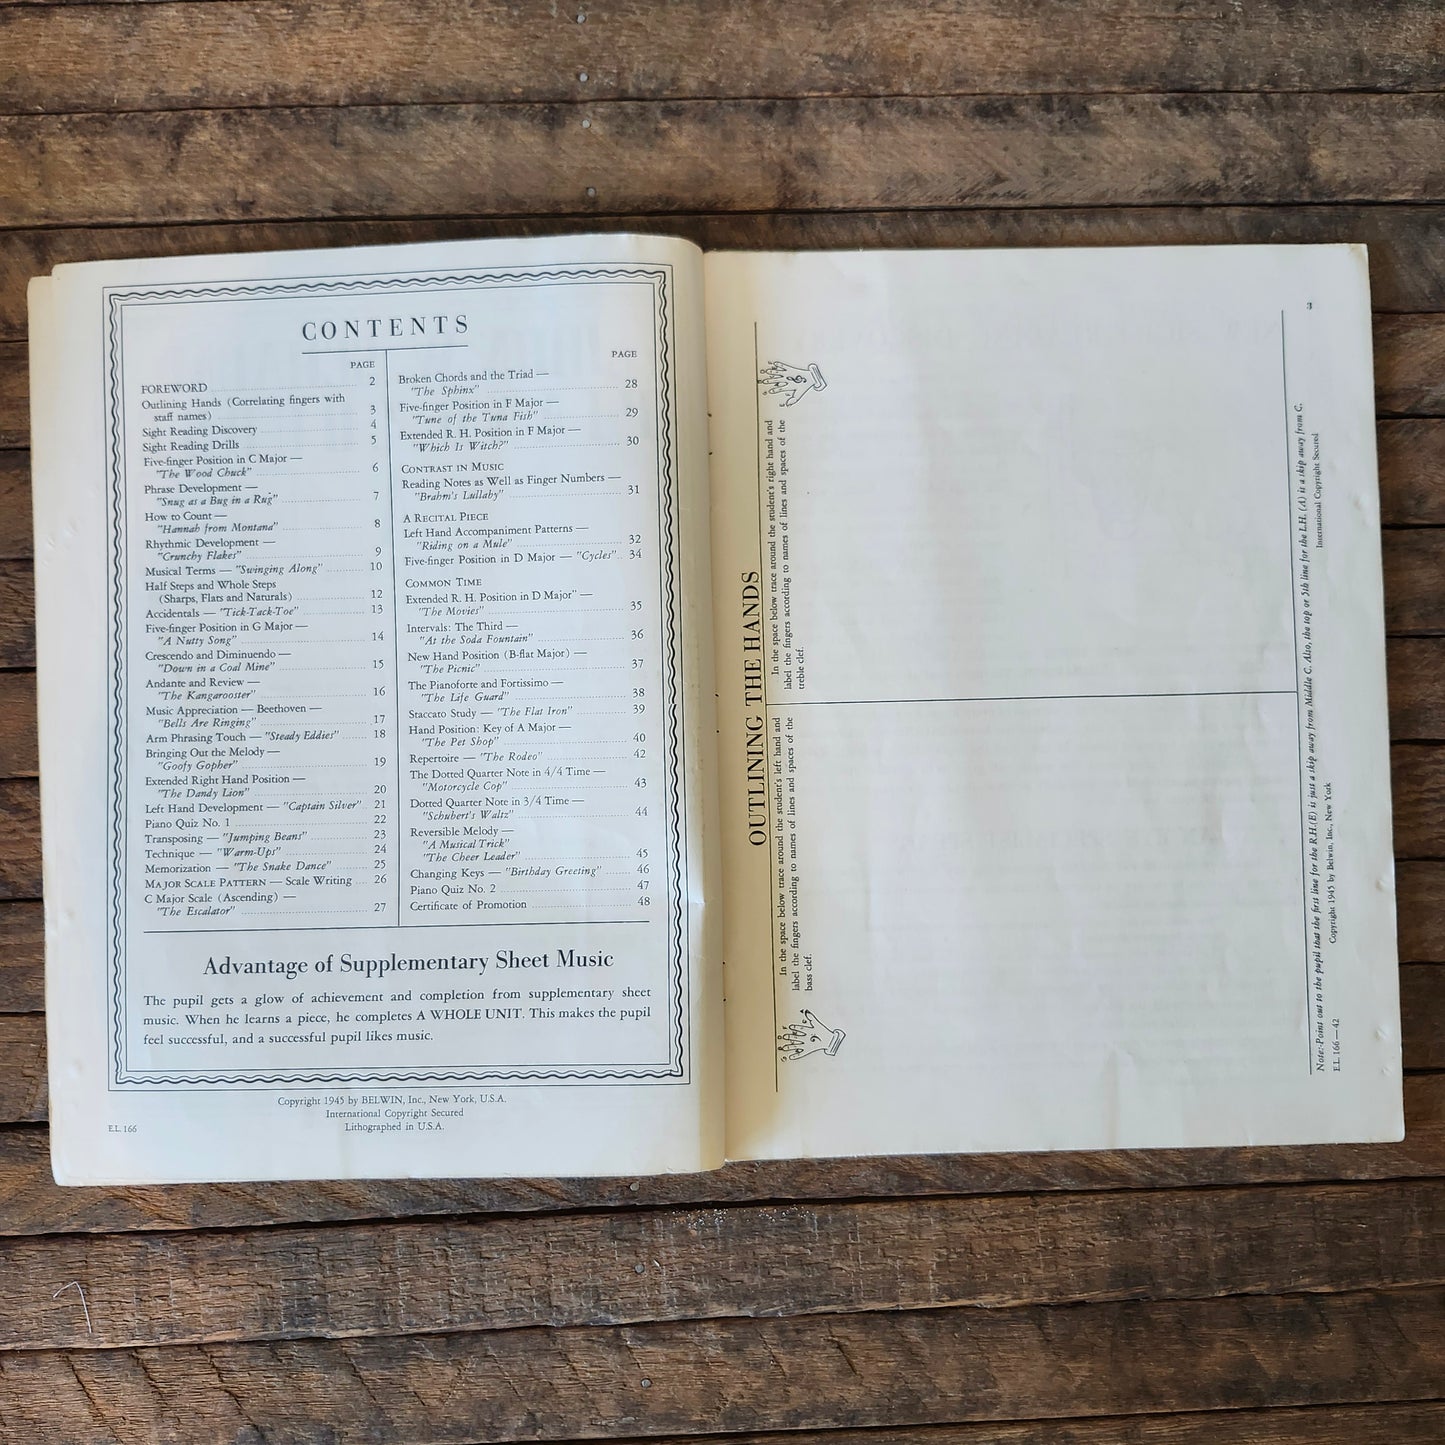 CONTENTS
PAGE
FOREWORD 2
Outlining Hands (Correlating fingers with
staff names) 3
Sight Reading Discovery 4
Sight Reading Drills 5
Five-finger Position in C Major —
"The Wood Chuck" 6
Phrase Development —
"Snug as a Bug in a Rug" 7
How to Count —
"Hannah from Montana" 8
Rhythmic Development —
"Crunchy Flakes" 9
Musical Terms — "Swinging Along" 10
Half Steps and Whole Steps
(Sharps, Flats and Naturals) 12
Accidentals — "Tick-Tack-Toe" 13
Five-finger Position in G Major —
"A Nutty Song" 14
Crescendo and Diminuendo —
"Down in a Coal Mine" 15
Andante and Review —
"The Kangarooster" 16
Music Appreciation — Beethoven —
"Bells Are Ringing" 17
Arm Phrasing Touch — "Steady Eddies" 18
Bringing Out the Melody —
"Goofy Gopher" 19
Extended Right Hand Position —
"The Dandy Lion" 20
Left Hand Development — "Captain Silver" 21
Piano Quiz No. 1 22
Transposing — "Jumping Beans" 23
Technique — "Warm-Ups" 24
Memorization — "The Snake Dance" 25
MAJOR SCALE PATTERN — Scale Writing 26
C Major Scale (Ascending) —
"The Escalator" 27
PAGE
Broken Chords and the Triad —
"The Sphinx" 28
Five-finger Position in F Major —
"Tune of the Tuna Fish" 29
Extended R. H. Position in F Major —
"Which Is Witch?" 30
CONTRAST IN MUSIC
Reading Notes as Well as Finger Numbers —
"Brahm's Lullaby" 31
A RECITAL PIECE
Left Hand Accompaniment Patterns —
"Riding on a Mule" 32
Five-finger Position in D Major — "Cycles" 34
COMMON TIME
Extended R. H. Position in D Major" —
"The Movies" 35
Intervals: The Third —
"At the Soda Fountain" 36
New Hand Position (B-flat Major) —
"The Picnic" 37
The Pianoforte and Fortissimo —
"The Life Guard" 38
Staccato Study — "The Flat Iron" 39
Hand Position: Key of A Major —
"The Pet Shop" 40
Repertoire — "The Rodeo" 42
The Dotted Quarter Note in 4/4 Time —
"Motorcycle Cop" 43
Dotted Quarter Note in 3/4 Time —
"Schubert's Waltz" 44
Reversible Melody —
"A Musical Trick"
"The Cheer Leader" 45
Changing Keys — "Birthday Greeting" 46
Piano Quiz No. 2 47
Certificate of Promotion 48
Advantage of Supplementary Sheet Music
The pupil gets a glow of achievement and completion from supplementary sheet
music. When he learns a piece, he completes A WHOLE UNIT. This makes the pupil
feel successful, and a successful pupil likes music.
Copyright 1945 by BELWIN, Inc., New York, U.S.A.
International Copyright Secured
Lithographed in U.S.A.
E.L. 166
3
OUTLINING THE HANDS
In the space below trace around the student's left hand and
label the fingers according to names of lines and spaces of the
bass clef.
In the space below trace around the student's right hand and
label the fingers according to names of lines and spaces of the
treble clef.
Note:-Point out to the pupil that the first line for the R.H.(E) is just a skip away from Middle C. Also, the top or 5th line for the L.H. (A) is a skip away from C.
E.L. 166 — 42
Copyright 1945 by Belwin, Inc., New York
International Copyright Secured